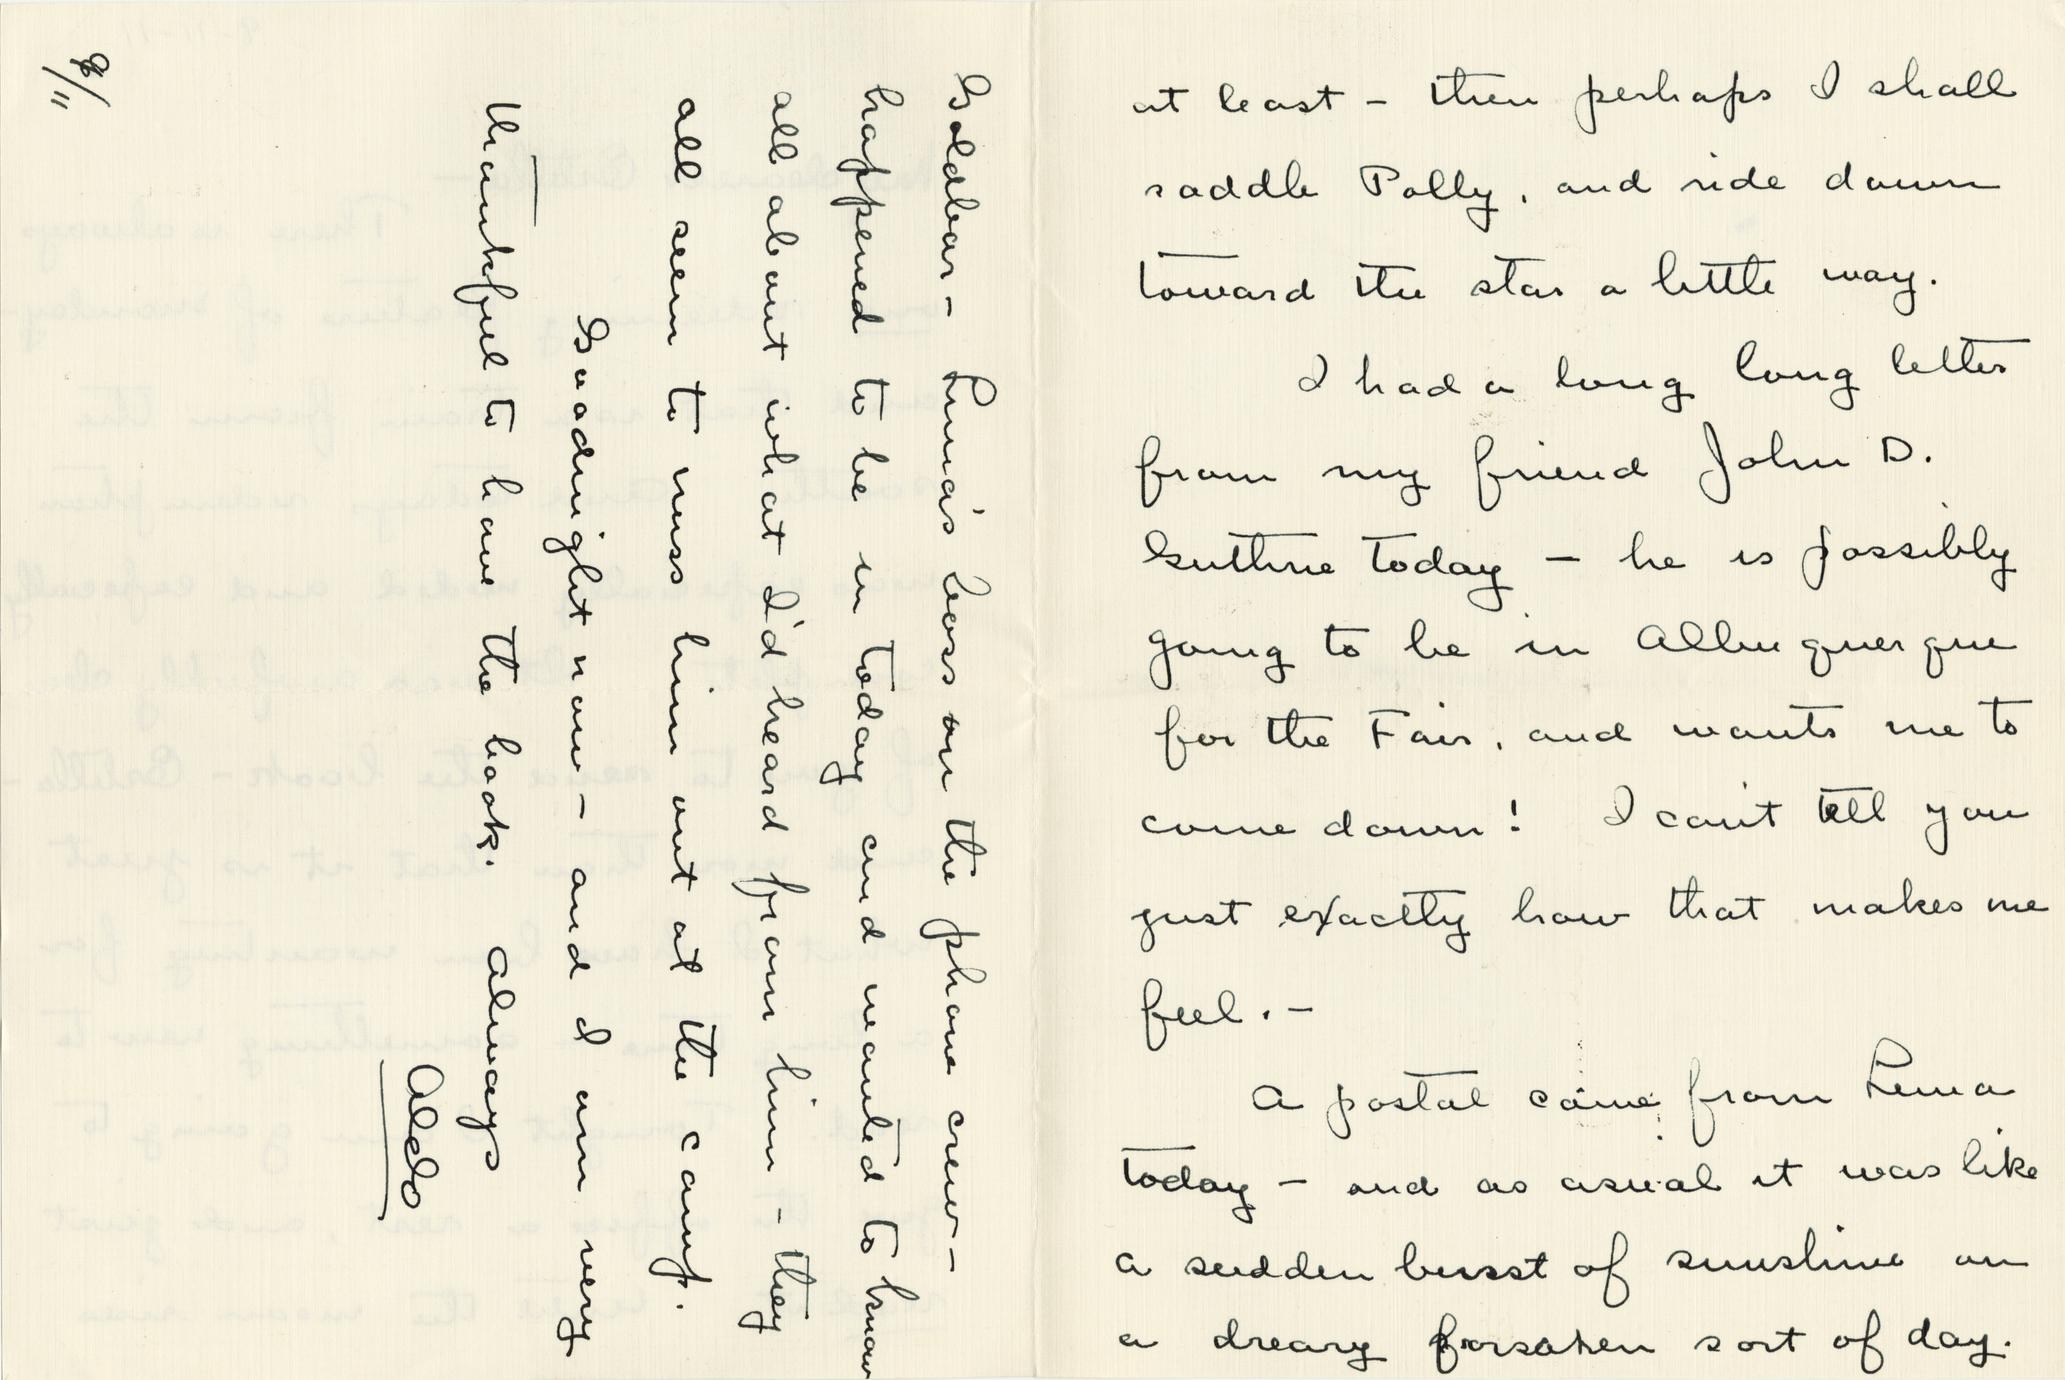 at least – then perhaps I shall
saddle Polly, and ride down
toward the star a little way.
I had a long long letter
from my friend John D.
Guthrie today – he is possibly
going to be in Albuquerque
for the Fair, and wants me to
come down! I can't tell you
just exactly how that makes me
feel. –
A postal came from Luna
today – and as usual it was like
a sudden burst of sunshine on
a dreary forsaken sort of day.
Goldbar – Luna's boss on the phone crew –
happened to be in today and wanted to know
all about what I'd heard from him – they
all seem to miss him out at the camp.
Goodnight now – and I am very
thankful to have the book. Always
Aldo
9/11